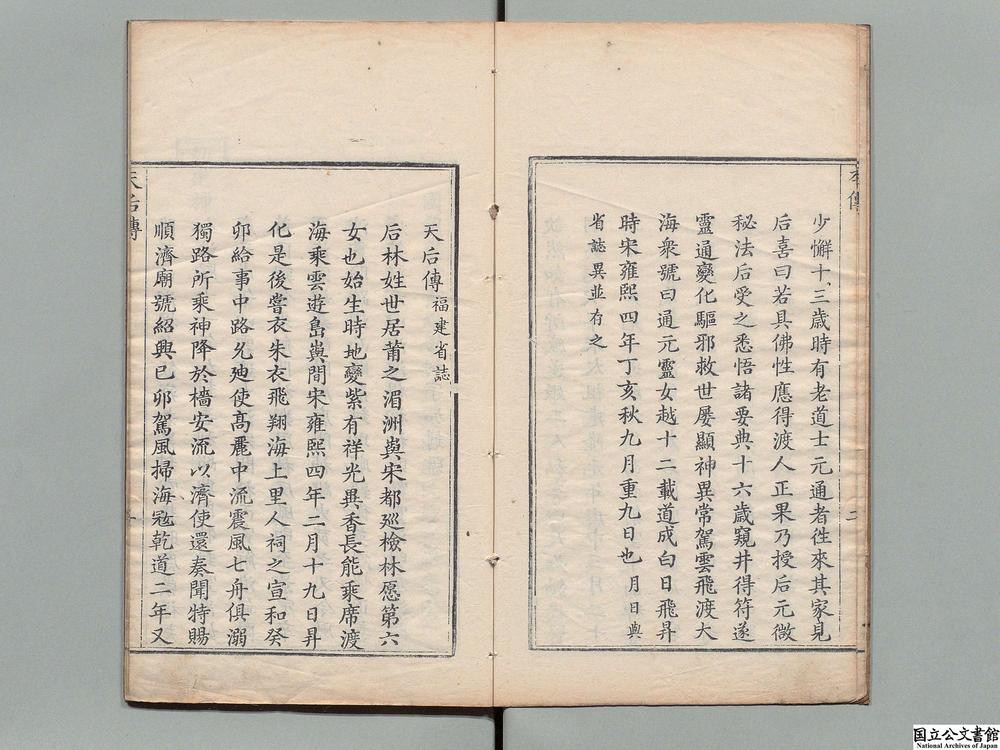 少懈十三歲時有老道士元通者徃來其家見
后喜曰若具佛性應得渡人正果乃授后元微
秘法后受之悉悟諸要典十六歲窺井得符遂
靈通變化驅邪救世屡顯神異常駕雲飛渡大
海衆號曰通元靈女越十二載道成白日飛昇
時宋雍熙四年丁亥秋九月重九日也月日與
省誌異並存之
天后傳福建省誌
后林姓世居莆之湄洲嶼宋都巡檢林愿第六
女也始生時地變紫有祥光異香長能乘席渡
海乘雲遊島嶼間宋雍熙四年二月十九日昇
化是後嘗衣朱衣飛翔海上里人祠之宣和癸
卯給事中路允廸使高麗中流震風七舟俱溺
獨路所乘神降於檣安流以濟使還奏聞特賜
順濟廟號紹興己卯駕風掃海寇乾道二年又
天后傳
国立公文書館
National Archives of Japan